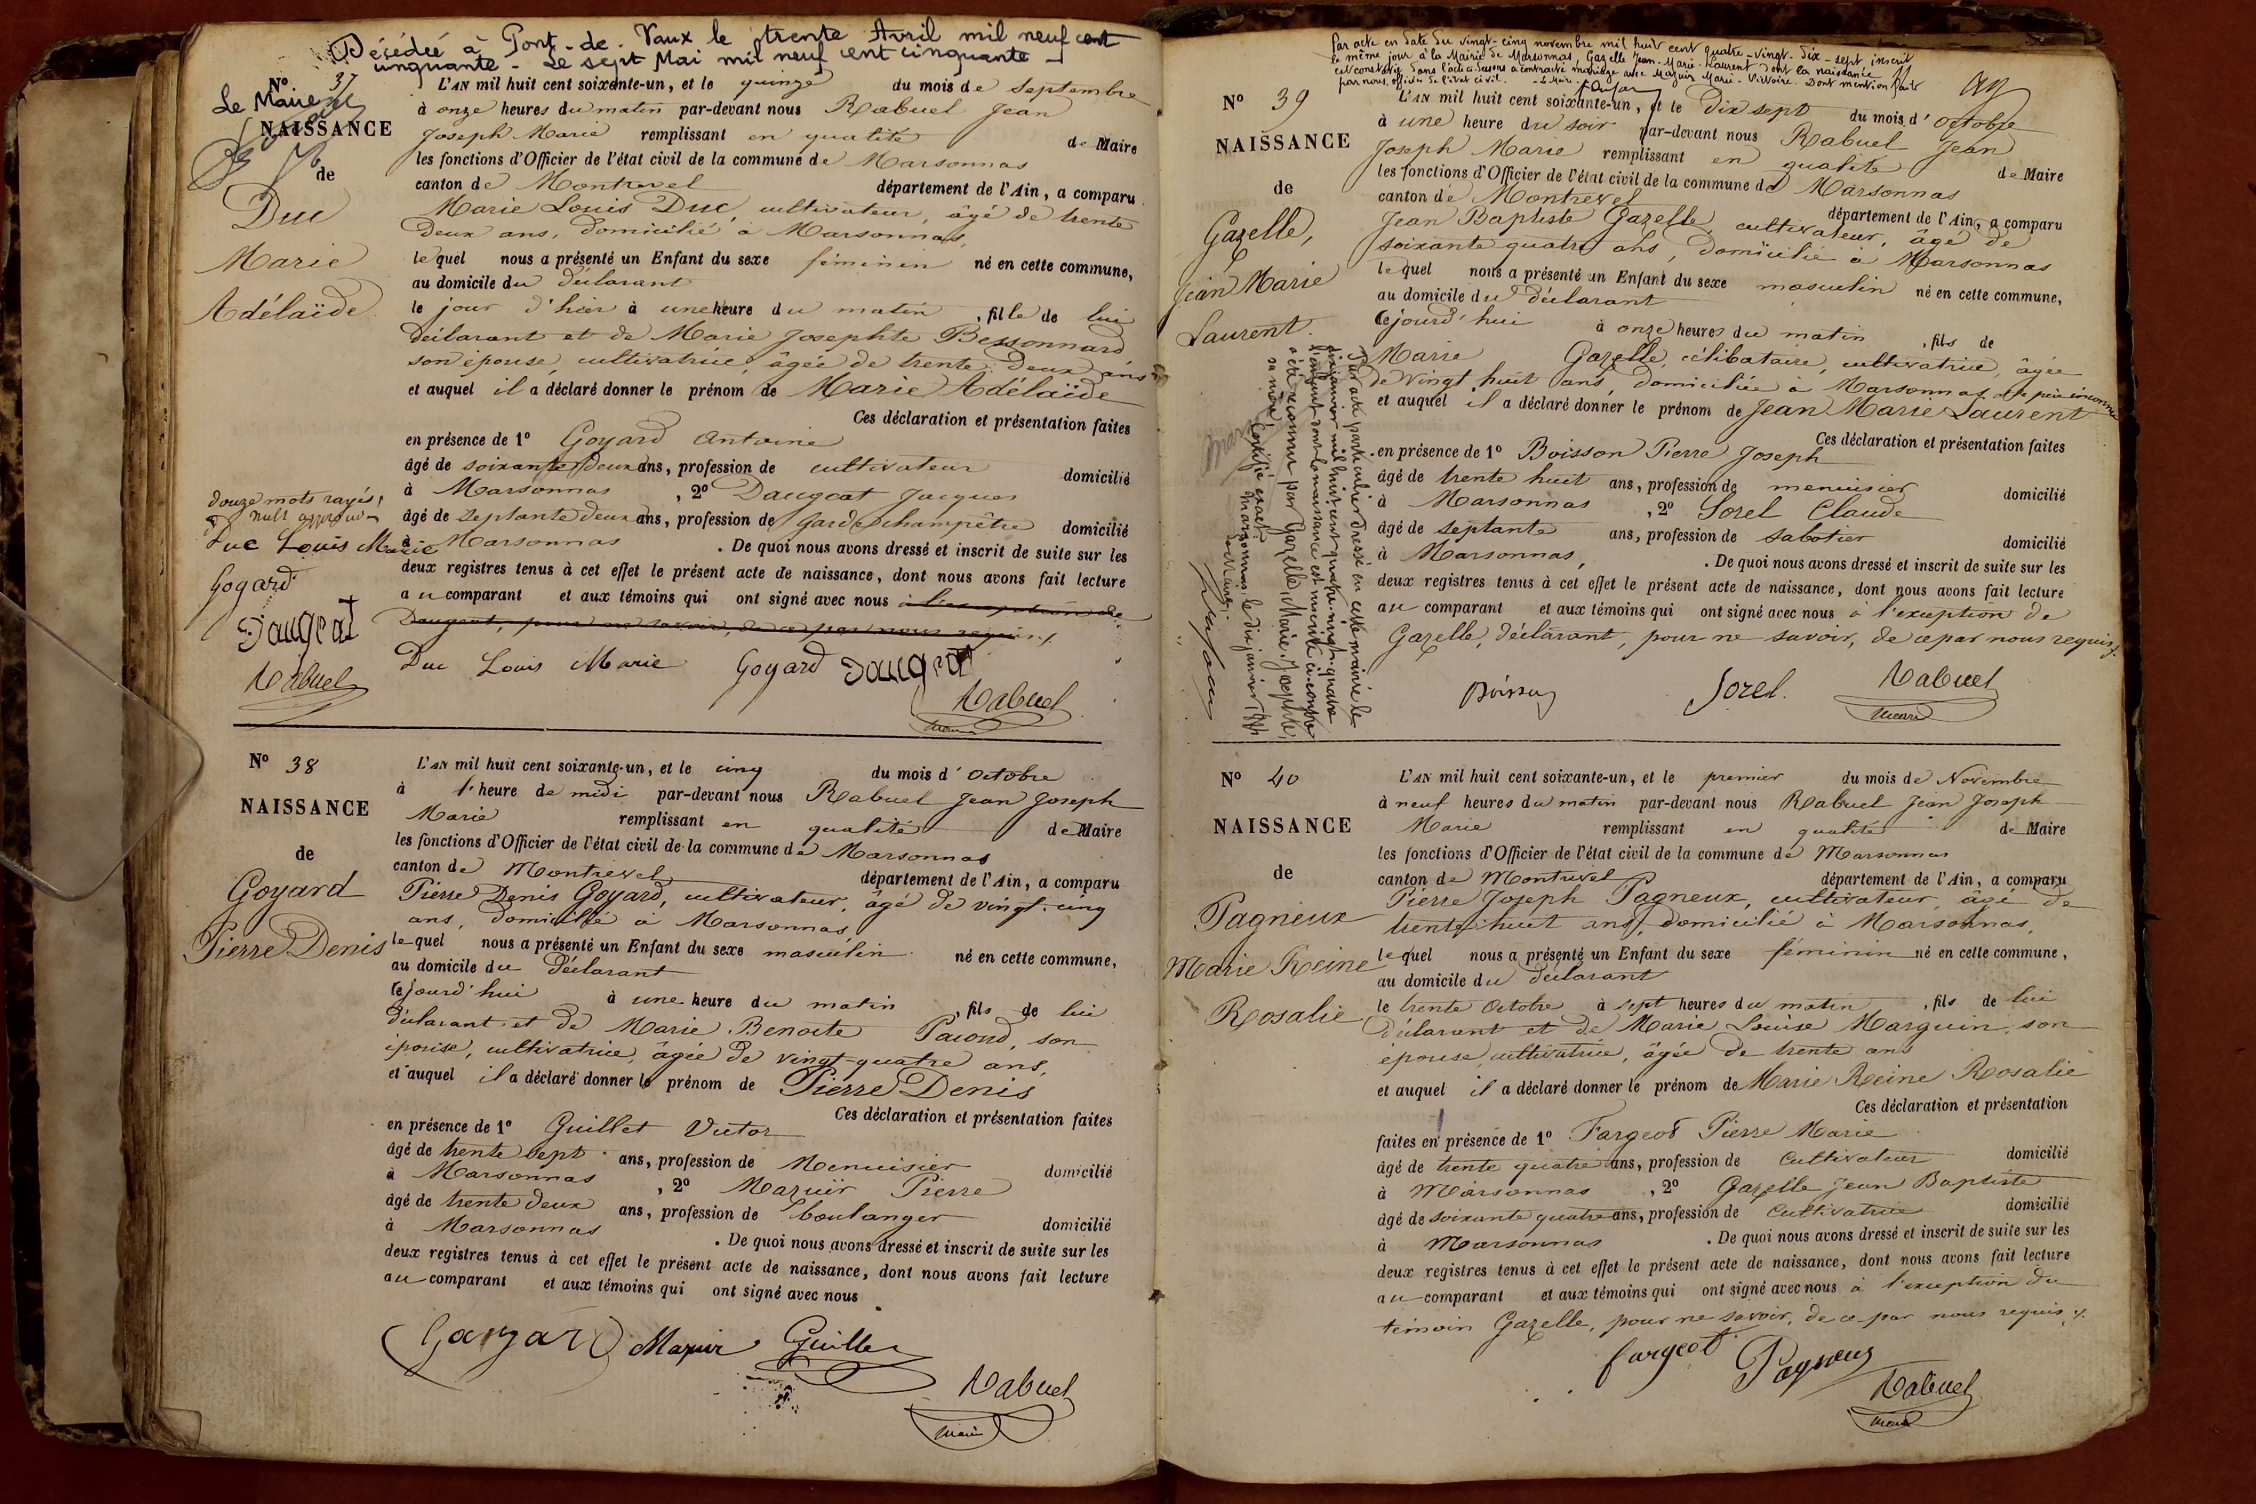 Décédée à Pont-de-Vaux le trente Avril mil neuf cent
cinquante - Le sept Mai mil neuf cent cinquante -
Le Maire
N° 37
NAISSANCE
de
Duc
Marie
Adélaïde
L'AN mil huit cent soixante-un, et le quinze du mois de Septembre
à onze heures du matin par-devant nous Rabuel Jean
Joseph Marie remplissant en qualité de Maire
les fonctions d'Officier de l'état civil de la commune de Marsonnas
canton de Montrevel département de l'Ain, a comparu
Marie Louis Duc, cultivateur, âgé de trente
deux ans, domicilié à Marsonnas,
lequel nous a présenté un Enfant du sexe féminin né en cette commune,
au domicile du déclarant
le jour d'hier à une heure du matin, fille de lui
déclarant et de Marie Josephte Bessonnard
son épouse, cultivatrice, âgée de trente deux ans
et auquel il a déclaré donner le prénom de Marie Adélaïde
Ces déclaration et présentation faites
en présence de 1° Goyard Antoine
âgé de soixante deux ans, profession de cultivateur domicilié
à Marsonnas, 2° Daugeat Jacques
âgé de septante deux ans, profession de garde champêtre domicilié
à Marsonnas. De quoi nous avons dressé et inscrit de suite sur les
deux registres tenus à cet effet le présent acte de naissance, dont nous avons fait lecture
au comparant et aux témoins qui ont signé avec nous à l'exception de
Daugeat, pour ne savoir, de ce par nous requis
Duc Louis Marie Goyard Daugeat
Rabuel
maire
douze mots rayés
nuls
Duc Louis Marie
Goyard
Daugeat
Rabuel
N° 38
NAISSANCE
de
Goyard
Pierre Denis
L'AN mil huit cent soixante-un, et le cinq du mois d'Octobre
à l'heure de midi par-devant nous Rabuel Jean Joseph
Marie remplissant en qualité de Maire
les fonctions d'Officier de l'état civil de la commune de Marsonnas
canton de Montrevel département de l'Ain, a comparu
Pierre Denis Goyard, cultivateur, âgé de vingt-cinq
ans, domicilié à Marsonnas
lequel nous a présenté un Enfant du sexe masculin né en cette commune,
au domicile du déclarant
cejourd'hui à une heure du matin, fils de lui
déclarant et de Marie Benoite Pacoud, son
épouse, cultivatrice, âgée de vingt-quatre ans,
et auquel il a déclaré donner le prénom de Pierre Denis
Ces déclaration et présentation faites
en présence de 1° Guillet Victor
âgé de trente sept ans, profession de Menuisier domicilié
à Marsonnas, 2° Mazuir Pierre
âgé de trente deux ans, profession de boulanger domicilié
à Marsonnas. De quoi nous avons dressé et inscrit de suite sur les
deux registres tenus à cet effet le présent acte de naissance, dont nous avons fait lecture
au comparant et aux témoins qui ont signé avec nous.
Goyard Mazuir Guillet
Rabuel
maire
Par acte en date du vingt-cinq novembre mil huit cent quatre-vingt-dix-sept inscrit
le même jour à la Mairie de Marsonnas, Gazelle Jean-Marie-Laurent dont la naissance
est constatée dans l'acte ci-dessous a contracté mariage avec Mazuir Marie-Victoire. Dont mention faite
par nous, officier de l'état civil. Le Maire
N° 39
NAISSANCE
de
Gazelle,
Jean Marie
Laurent.
L'AN mil huit cent soixante-un, et le Dix sept du mois d'octobre
à une heure du soir par-devant nous Rabuel Jean
Joseph Marie remplissant en qualité de Maire
les fonctions d'Officier de l'état civil de la commune de Marsonnas
canton de Montrevel département de l'Ain, a comparu
Jean Baptiste Gazelle, cultivateur, âgé de
soixante quatre ans, domicilié à Marsonnas
lequel nous a présenté un Enfant du sexe masculin né en cette commune,
au domicile du déclarant
cejourd'hui à onze heures du matin, fils de
Marie Gazelle, célibataire, cultivatrice, âgée
de vingt huit ans, domiciliée à Marsonnas et de père inconnu
et auquel il a déclaré donner le prénom de Jean Marie Laurent
Ces déclaration et présentation faites
en présence de 1° Boisson Pierre Joseph
âgé de trente huit ans, profession de menuisier domicilié
à Marsonnas, 2° Sorel Claude
âgé de septante ans, profession de sabotier domicilié
à Marsonnas,. De quoi nous avons dressé et inscrit de suite sur les
deux registres tenus à cet effet le présent acte de naissance, dont nous avons fait lecture
au comparant et aux témoins qui ont signé avec nous à l'exception de
Gazelle, déclarant, pour ne savoir, de ce par nous requis
Boisson Sorel. Rabuel
maire
Par acte particulier dressé en cette mairie le
dix janvier mil huit cent quatre-vingt-quatre
l'enfant dont la naissance est inscrite ci-contre
a été reconnu par Gazelle, Marie, Josephte,
sa mère. Certifié exact.
Marsonnas, le dix janvier 1884
Le Maire,
N° 40
NAISSANCE
de
Pagneux
Marie Reine
Rosalie
L'AN mil huit cent soixante-un, et le premier du mois de Novembre
à neuf heures du matin par-devant nous Rabuel Jean Joseph
Marie remplissant en qualité de Maire
les fonctions d'Officier de l'état civil de la commune de Marsonnas
canton de Montrevel département de l'Ain, a comparu
Pierre Joseph Pagneux, cultivateur, âgé de
trente huit ans, domicilié à Marsonnas,
lequel nous a présenté un Enfant du sexe féminin né en cette commune,
au domicile du déclarant
le trente octobre à sept heures du matin, fils de lui
déclarant et de Marie Louise Marguin, son
épouse, cultivatrice, âgée de trente ans
et auquel il a déclaré donner le prénom de Marie Reine Rosalie
Ces déclaration et présentation
faites en présence de 1° Fargeot Pierre Marie
âgé de trente quatre ans, profession de Cultivateur domicilié
à Marsonnas, 2° Gazelle Jean Baptiste
âgé de soixante quatre ans, profession de Cultivateur domicilié
à Marsonnas. De quoi nous avons dressé et inscrit de suite sur les
deux registres tenus à cet effet le présent acte de naissance, dont nous avons fait lecture
au comparant et aux témoins qui ont signé avec nous à l'exception du
témoin Gazelle, pour ne savoir, de ce par nous requis
fargeot Pagneux
Rabuel
maire